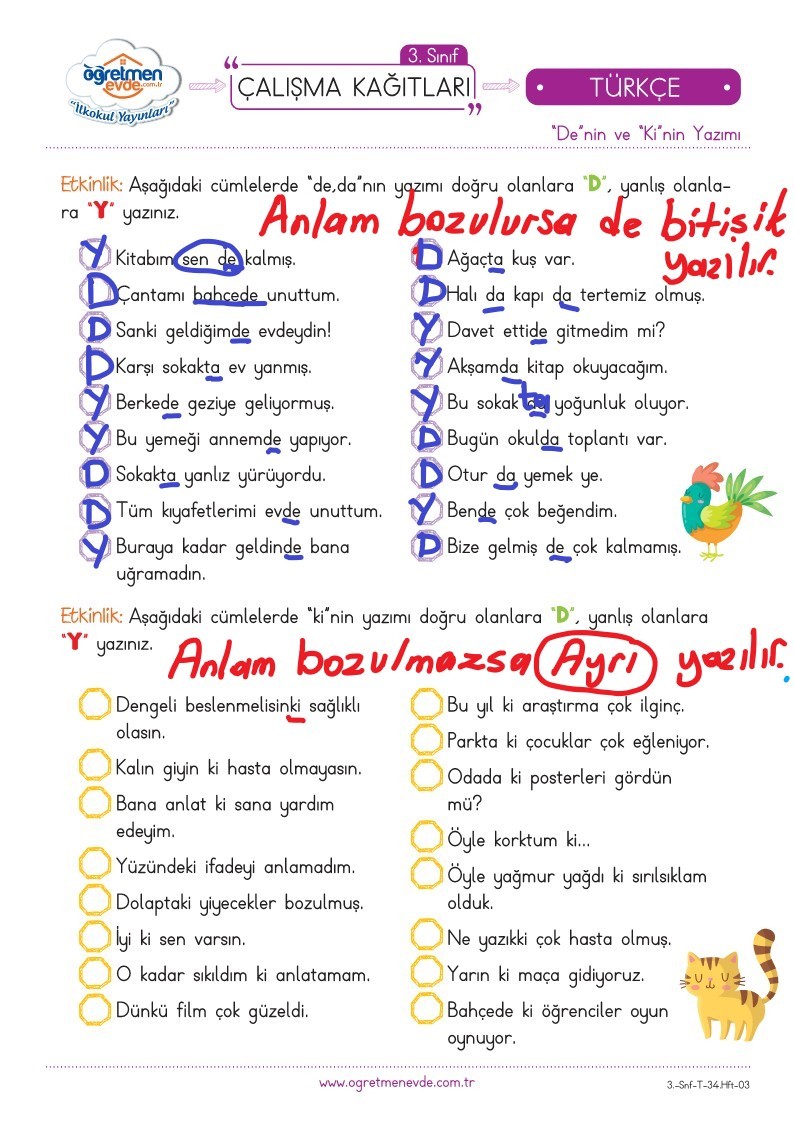 öğretmen
evde.com.tr
"İlkokul Yayınları"
3. Sınıf
"ÇALIŞMA KAĞITLARI"
TÜRKÇE
"De"nin ve "Ki"nin Yazımı
Etkinlik: Aşağıdaki cümlelerde "de,da"nın yazımı doğru olanlara "D", yanlış olanla-
ra "Y" yazınız.
Anlam bozulursa de bitişik
yazılır.
Y Kitabım sen de kalmış.
D Çantamı bahçede unuttum.
D Sanki geldiğimde evdeydin!
D Karşı sokakta ev yanmış.
Y Berkede geziye geliyormuş.
Y Bu yemeği annemde yapıyor.
D Sokakta yanlız yürüyordu.
D Tüm kıyafetlerimi evde unuttum.
Y Buraya kadar geldinde bana
uğramadın.
D Ağaçta kuş var.
D Halı da kapı da tertemiz olmuş.
Y Davet ettide gitmedim mi?
Y Akşamda kitap okuyacağım.
Y Bu sokak ta yoğunluk oluyor.
D Bugün okulda toplantı var.
D Otur da yemek ye.
Y Bende çok beğendim.
D Bize gelmiş de çok kalmamış.
Etkinlik: Aşağıdaki cümlelerde "ki"nin yazımı doğru olanlara "D", yanlış olanlara
"Y" yazınız.
Anlam bozulmazsa Ayrı yazılır.
Dengeli beslenmelisinki sağlıklı
olasın.
Kalın giyin ki hasta olmayasın.
Bana anlat ki sana yardım
edeyim.
Yüzündeki ifadeyi anlamadım.
Dolaptaki yiyecekler bozulmuş.
İyi ki sen varsın.
O kadar sıkıldım ki anlatamam.
Dünkü film çok güzeldi.
Bu yıl ki araştırma çok ilginç.
Parkta ki çocuklar çok eğleniyor.
Odada ki posterleri gördün
mü?
Öyle korktum ki...
Öyle yağmur yağdı ki sırılsıklam
olduk.
Ne yazıkki çok hasta olmuş.
Yarın ki maça gidiyoruz.
Bahçede ki öğrenciler oyun
oynuyor.
www.ogretmenevde.com.tr
3.-Snf-T-34.Hft-03